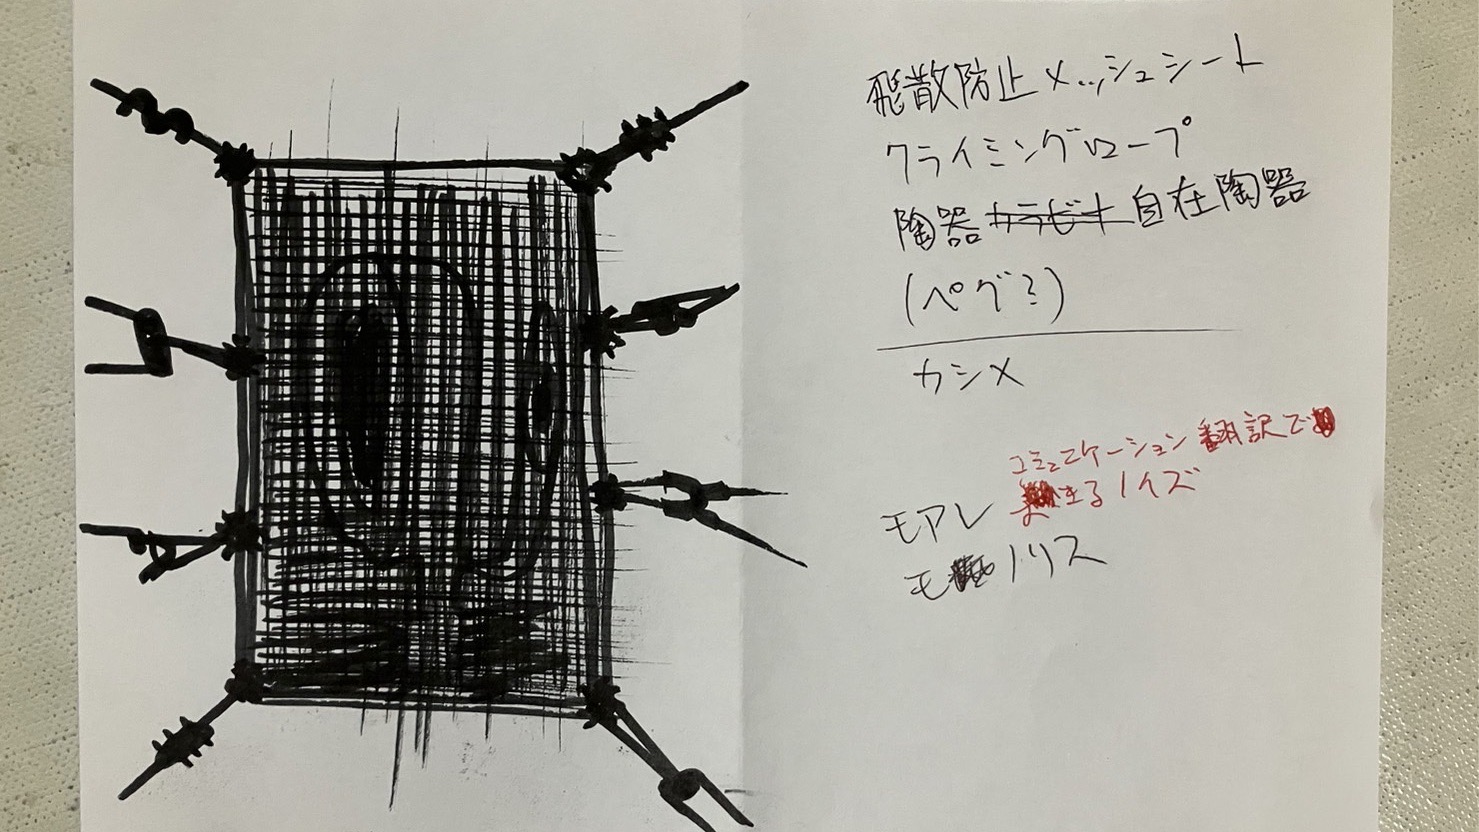 飛散防止メッシュシート
クライミングロープ
陶器 カラビナ 自在陶器
(ペグ?)
カシメ
コミュニケーション翻訳で
きるノイズ
モアレ
モノリス